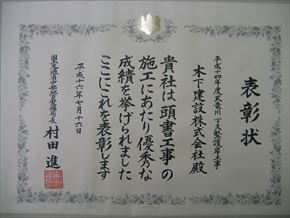 表彰状
平成十四年度天竜川下久堅護岸工事
木下建設株式会社殿
貴社は頭書工事の
施工にあたり優秀な
成績を挙げられました
ここにこれを表彰します
平成十六年七月十六日
国土交通省中部地方整備局長 村田進